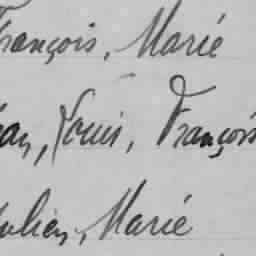 François, Marie
Jean, Louis, François
Julien, Marie